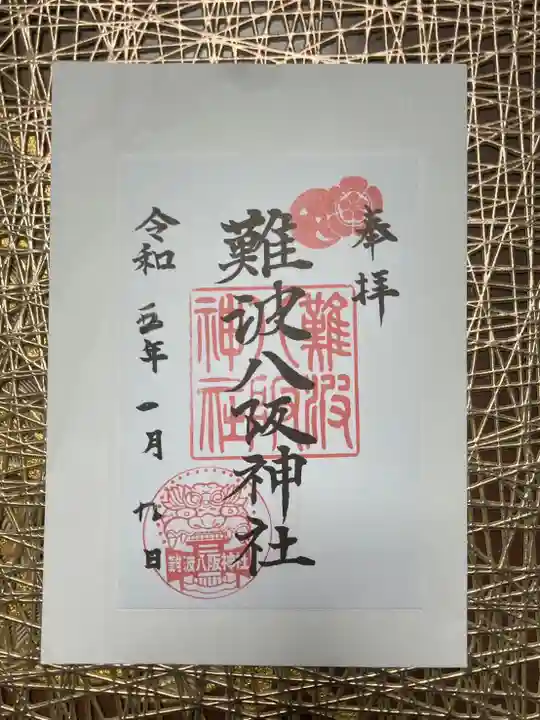 奉拝
難波八阪神社
難波
八阪
神社
令和五年一月九日
難波八阪神社